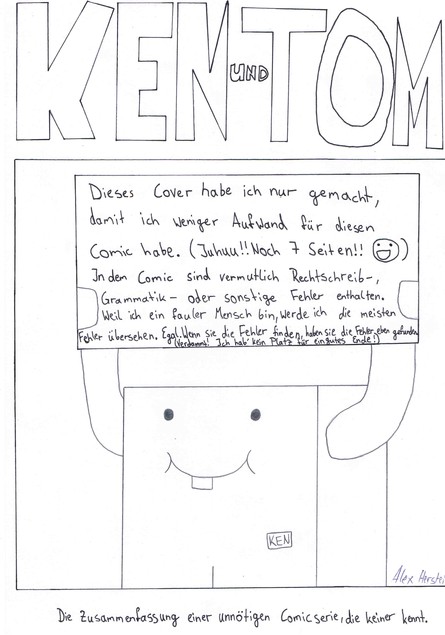 KEN UND TOM
Dieses Cover habe ich nur gemacht,
damit ich weniger Aufwand für diesen
Comic habe. (Juhuu!! Noch 7 Seiten!! )
In den Comic sind vermutlich Rechtschreib-,
Grammatik- oder sonstige Fehler enthalten.
Weil ich ein fauler Mensch bin, werde ich die meisten
Fehler übersehen. Egal. Wenn sie die Fehler finden, haben sie die Fehler eben gefunden.
(Verdammt! Ich hab' kein Platz für ein gutes Ende!)
KEN
Alex
Die Zusammenfassung einer unnötigen Comicserie, die keiner kennt.